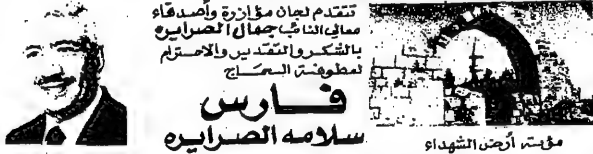 تتقدم لجان مؤازرة وأصدقاء
معالي النائب جمال الصرايره
بالشكر والتقدير والاحترام
لعطوفة الحاج
فارس
سلامه الصرايره
مؤته أرض الشهداء